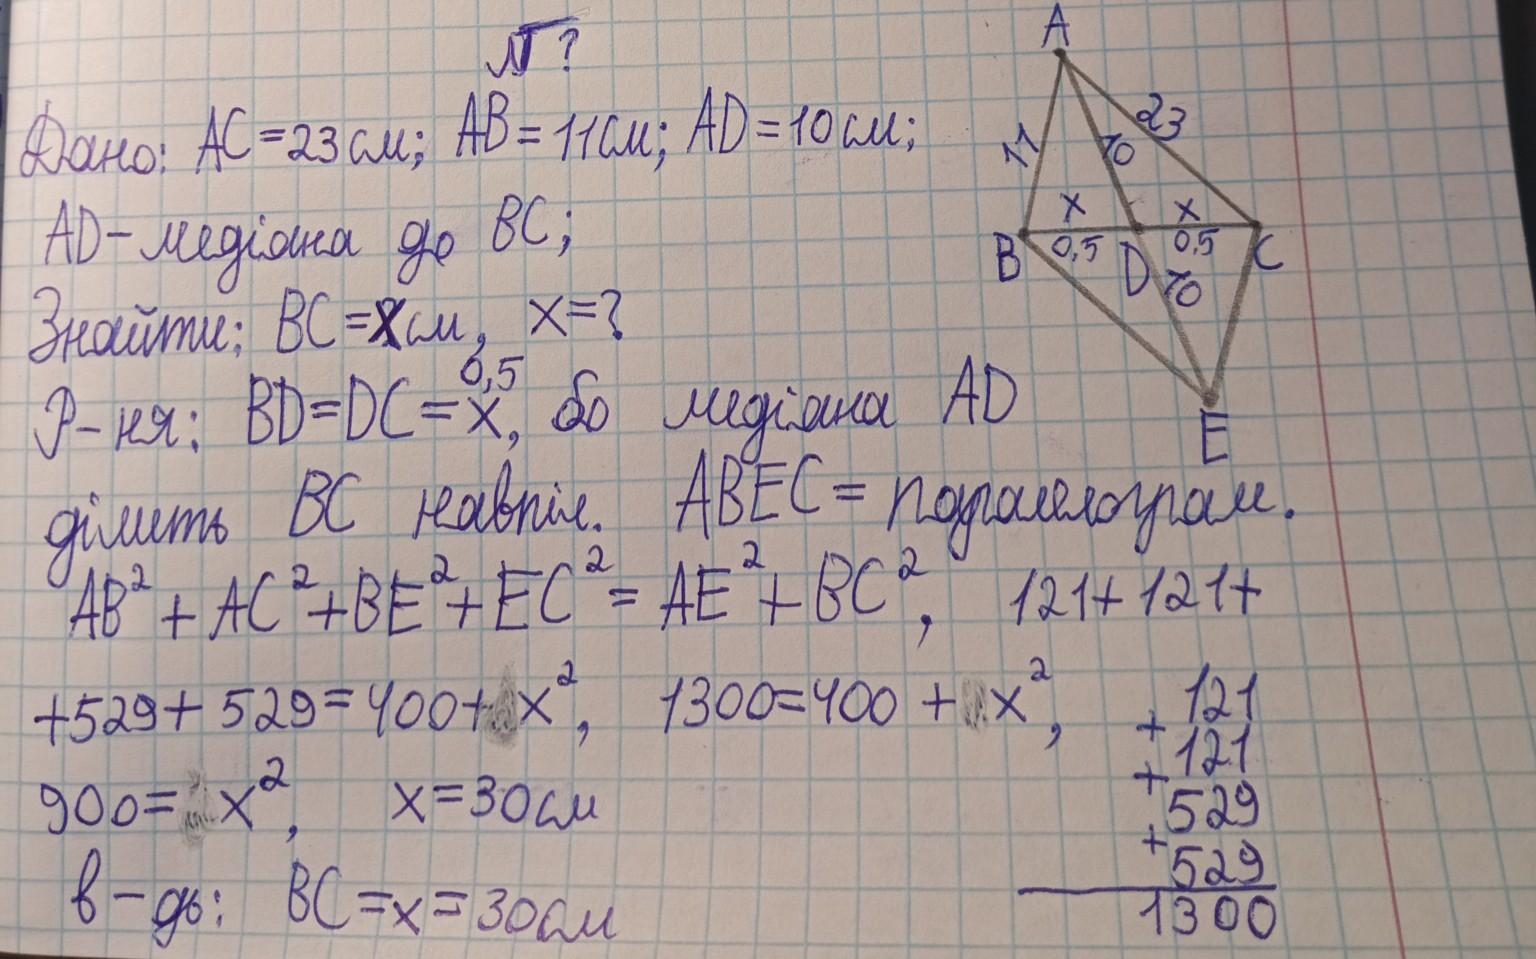 № ?
Дано: AC=23см; AB=11см; AD=10см;
AD-медіана до BC;
Знайти: BC=xсм, x=?
Р-ня: BD=DC=0,5x, бо медіана AD
ділить BC навпіл. ABEC = паралелограм.
AB²+AC²+BE²+EC²=AE²+BC², 121+121+
+529+529=400+x², 1300=400+x²,
900=x², x=30см
В-дь: BC=x=30см
121
+121
+529
+529
1300
A
11
10
23
x
x
B
0,5
D
0,5
C
10
E